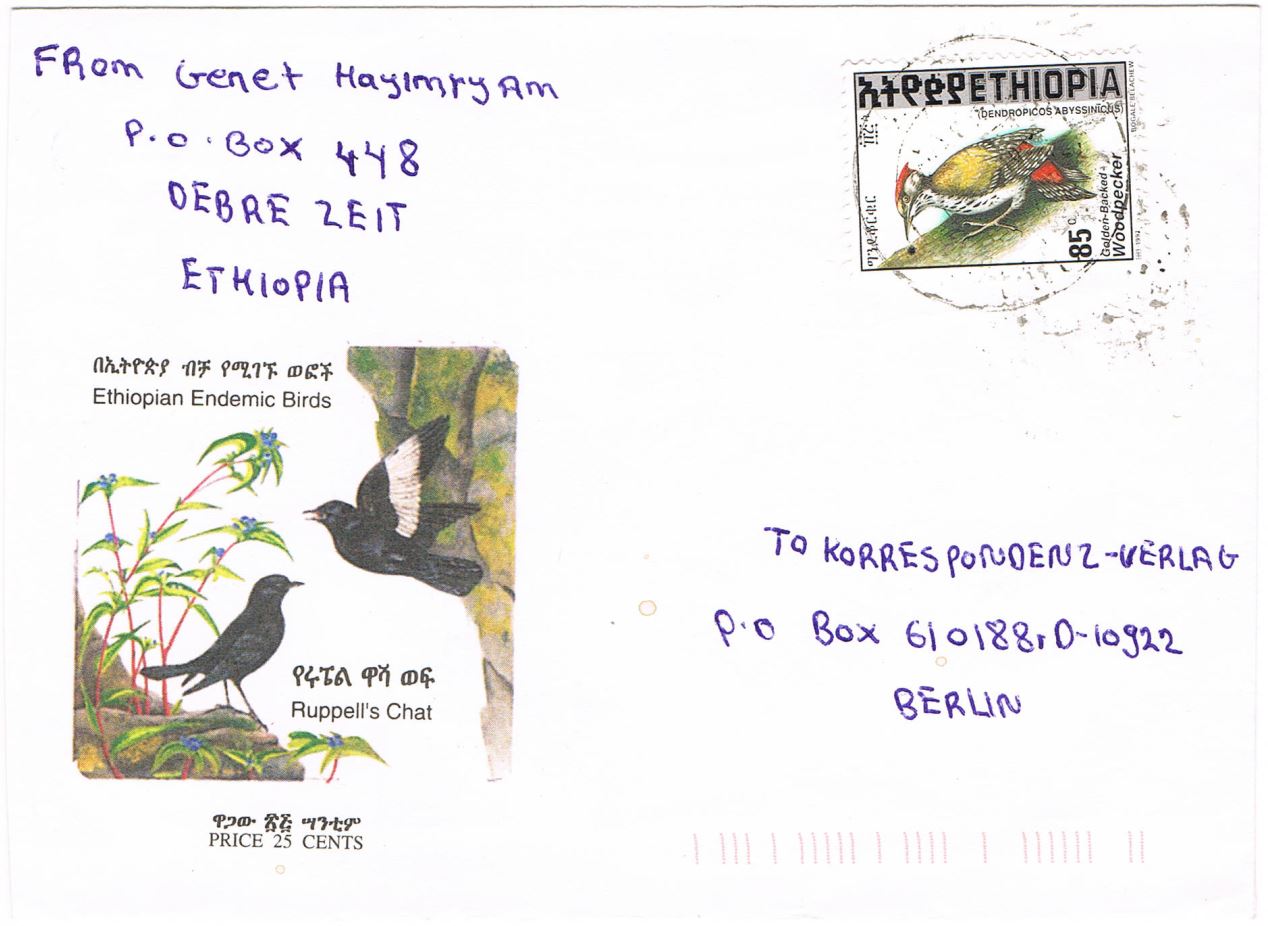 FROM Genet HayimryAm
P.O. BOX 448
DEBRE ZEIT
ETHIOPIA
ኢትዮጵያ ETHIOPIA
(DENDROPICOS ABYSSINICUS)
BOGALE BELACHEW
Golden-Backed
Woodpecker
85c
በኢትዮጵያ ብቻ የሚገኙ ወፎች
Ethiopian Endemic Birds
የሩፔል ዋሻ ወፍ
Ruppell's Chat
ዋጋው ፳፭ ሣንቲም
PRICE 25 CENTS
TO KORRESPONDENZ-VERLAG
P.O BOX 610188, D-10922
BERLIN